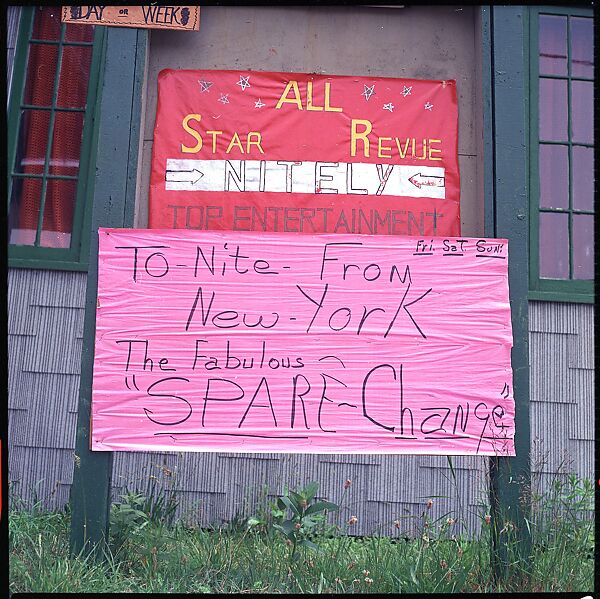 DAY OR WEEK
ALL
STAR REVUE
NITELY
TOP ENTERTAINMENT
Fri. Sat. Sun.
To-Nite- From
New-York
The Fabulous
"SPARE-Change"